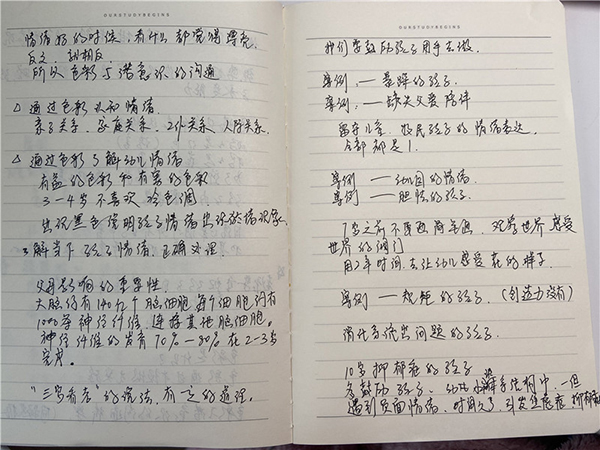 OURSTUDYBEGINS
情绪好的时候,有什么都觉得漂亮。
反之,就相反
所以色彩与潜意识的沟通
△ 通过色彩认知情绪.
亲子关系、家庭关系、工作关系、人际关系.
△ 通过色彩了解幼儿情绪
有益的色彩和有害的色彩
3-4岁不喜欢冷色调
出现黑色说明孩子情绪出现状况
了解当下孩子情绪.正确处理.
父母影响的重要性
大脑约有140亿个脑细胞每个细胞约有
1000条神经纤维.连接其他脑细胞。
神经纤维的发育70%-80%在2-3岁
完成。
"三岁看老"的说法,有一定的道理。
OURSTUDYBEGINS
我们要鼓励孩子用手去做.
案例.一 的孩子.
案例.一缺失父爱陪伴
留守儿童. 孩子的情绪表达.
全部都是1.
案例一幼儿园的情绪
案例一肥胖的孩子.
7岁之前不要画简笔画.观察世界感受
世界的
用2年时间去让幼儿感受花的样子.
案例一规矩的孩子.(创造力没有)
替代系统出问题的孩子
10岁抑郁症的孩子
多鼓励孩子、幼儿 系统有中.一但
遇到负面情绪,时间久了.引发焦虑症 抑郁